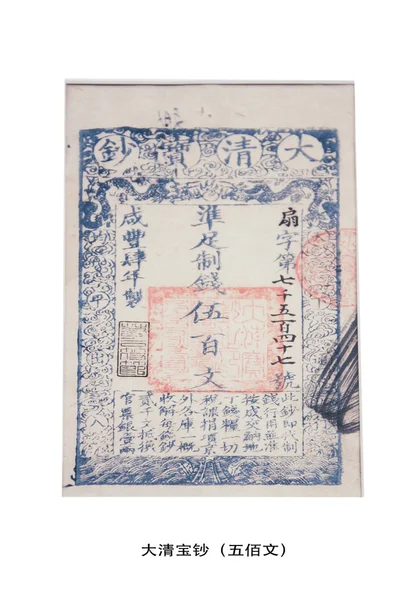 大清寶鈔
扇字第七千五百四十七號
準足制錢伍百文
咸豐肆年製
此鈔即代制
錢行用並准
按成交納地
丁錢糧一切
稅課捐項京
外各庫一概
收解每錢鈔
貳千文抵換
官票銀壹兩
大清宝钞（五佰文）